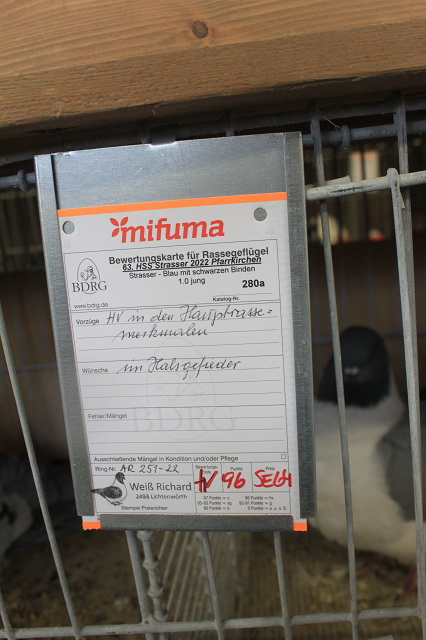 mifuma
Bewertungskarte für Rassegeflügel
63. HSS Strasser 2022 Pfarrkirchen
Strasser - Blau mit schwarzen Binden
1.0 jung
280a
BDRG
www.bdrg.de
Katalog-Nr.
Vorzüge HV in den Hauptrasse=
merkmalen
Wünsche im Halsgefieder
Fehler/Mängel
BDRG
Ausschließende Mängel in Kondition und/oder Pflege
Ring-Nr. AR 251-22
Weiß Richard
2493 Lichtenwörth
Stempel Preisrichter
Punkte
Preis
HV 96 SE
97 Punkte = v
96 Punkte = hv
93-95 Punkte = sg
92-91 Punkte = g
90 Punkte = b